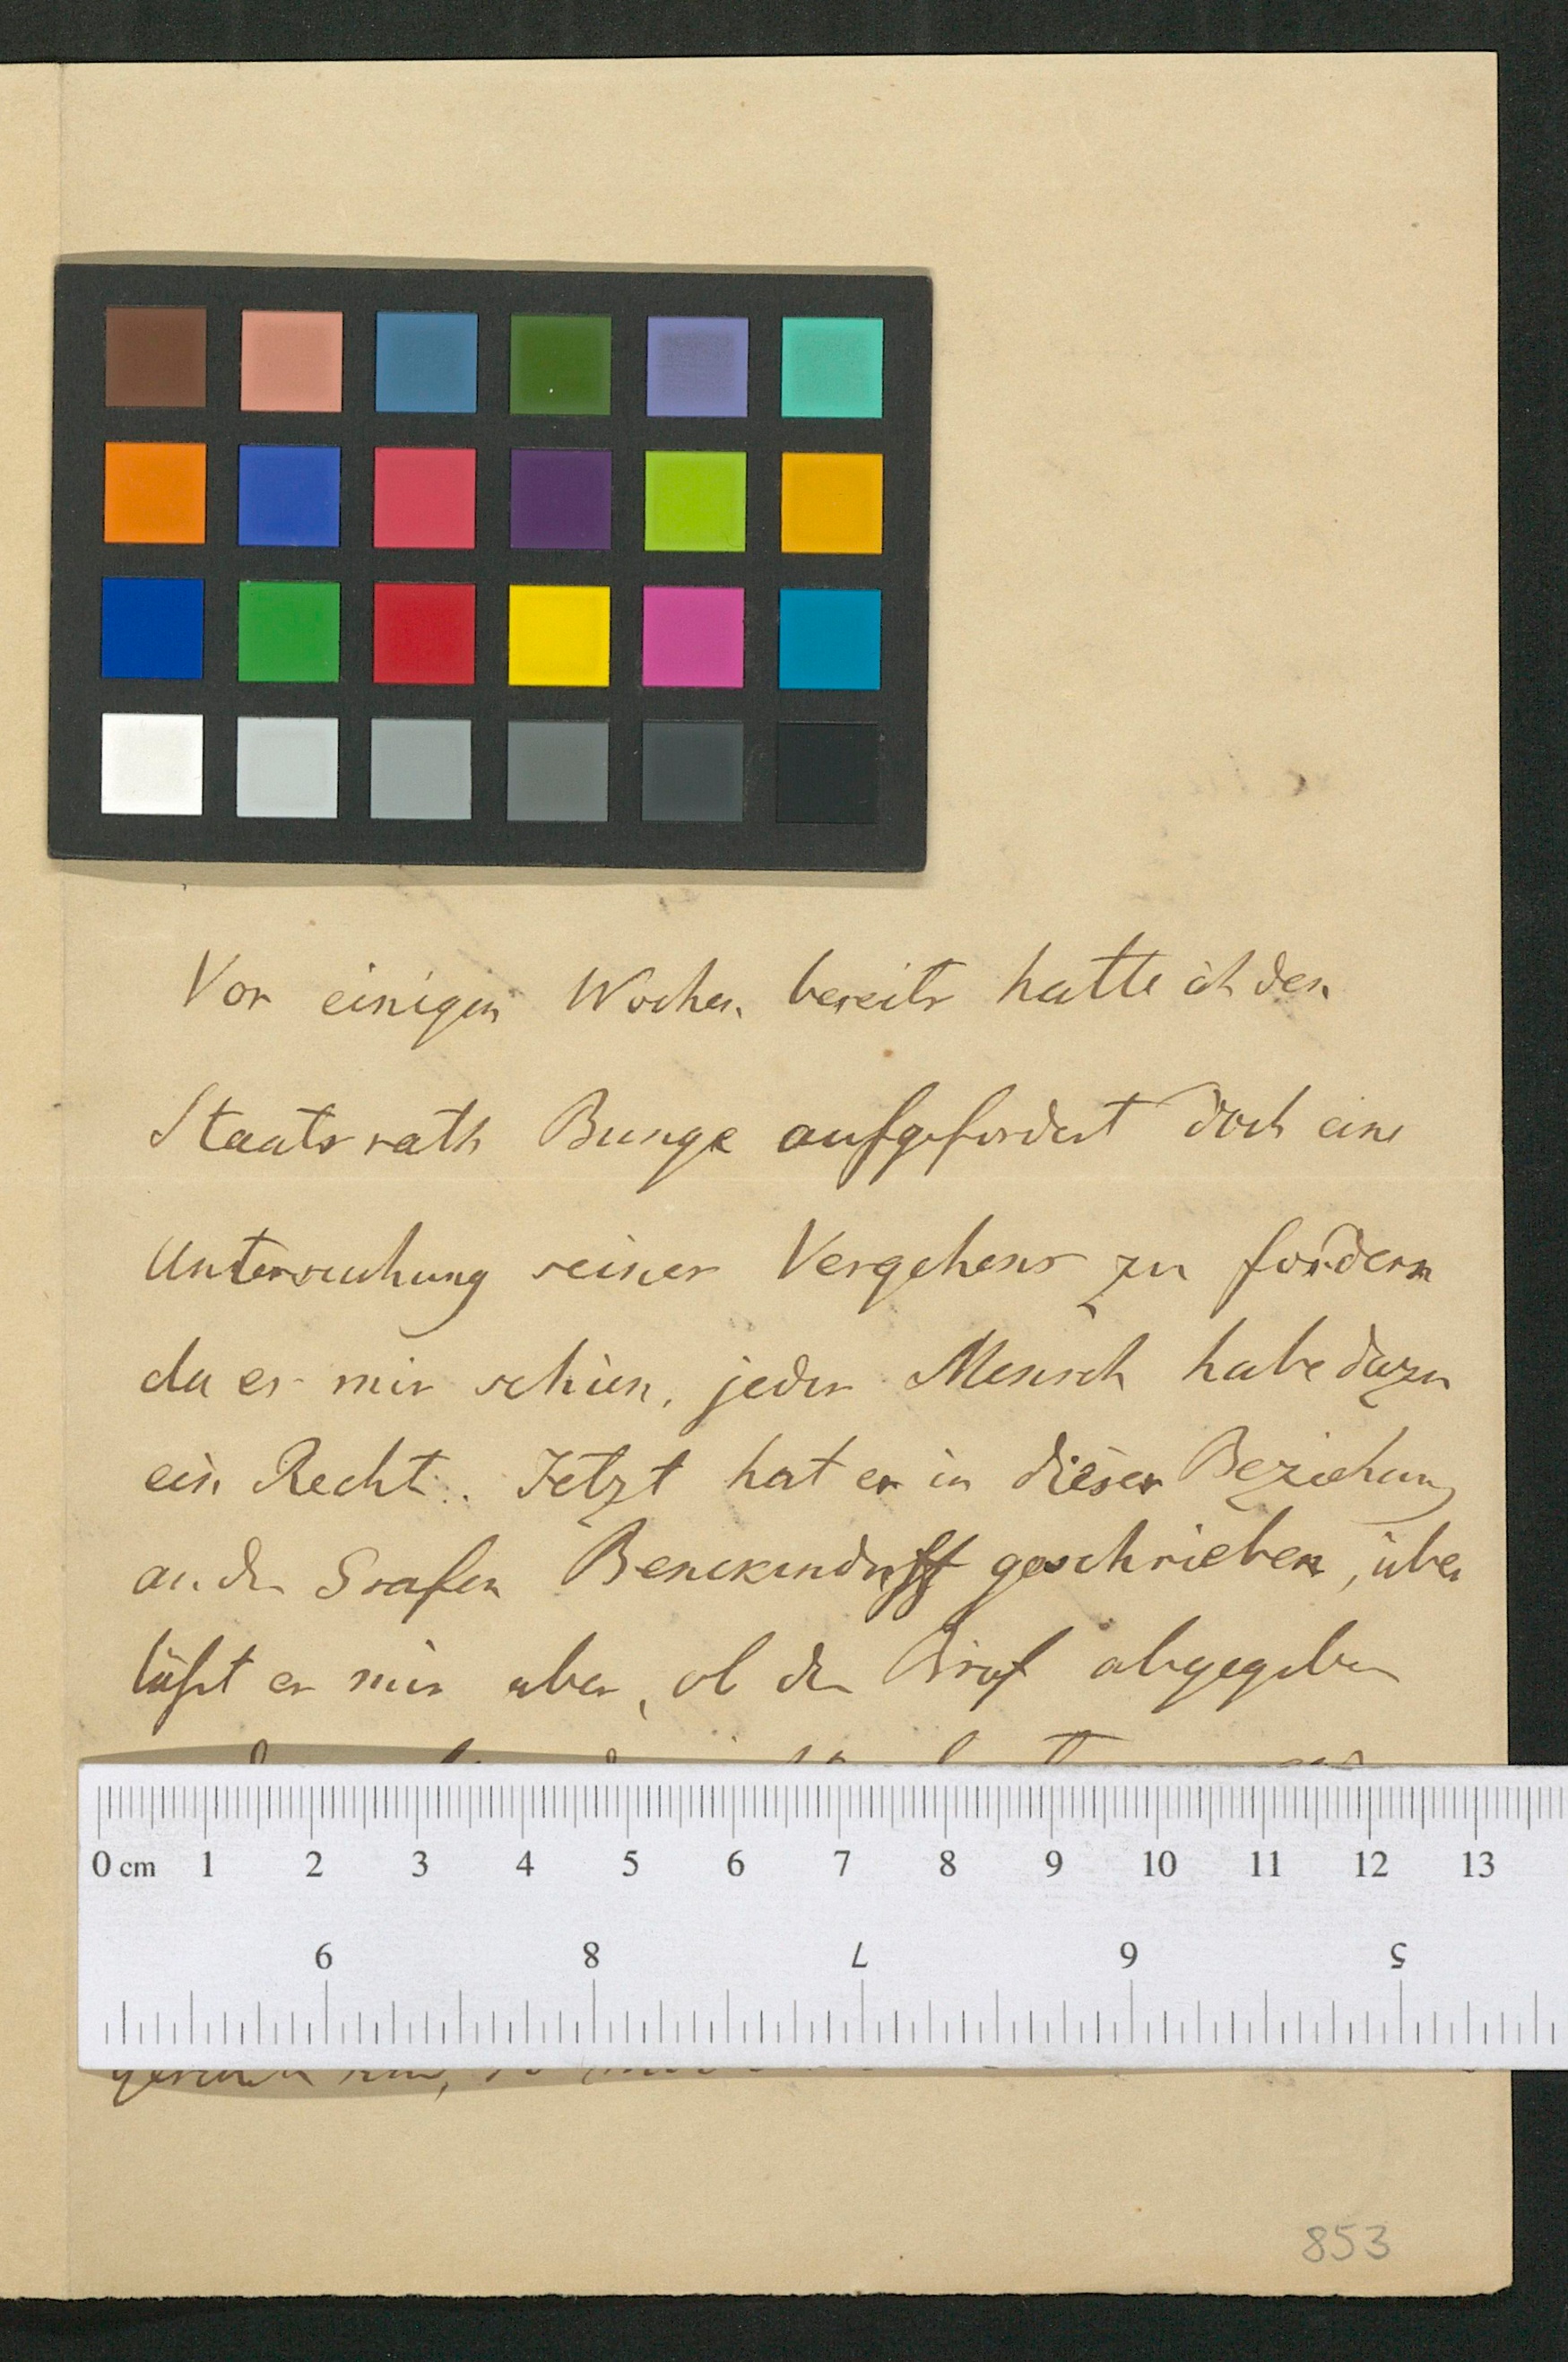 Vor einigen Wochen bereits hatte ich den
Staatsrath Bunge aufgefordert doch eine
Untersuchung seines Vergehens zu fordern
da es mir schien, jeder Mensch habe dazu
ein Recht. Jetzt hat er in dieser Beziehung
an den Grafen Benckendorff geschrieben, über
läßt es mir aber, ob der Brief abgegeben
0 cm 1 2 3 4 5 6 7 8 9 10 11 12 13
9 8 7 6 5
853